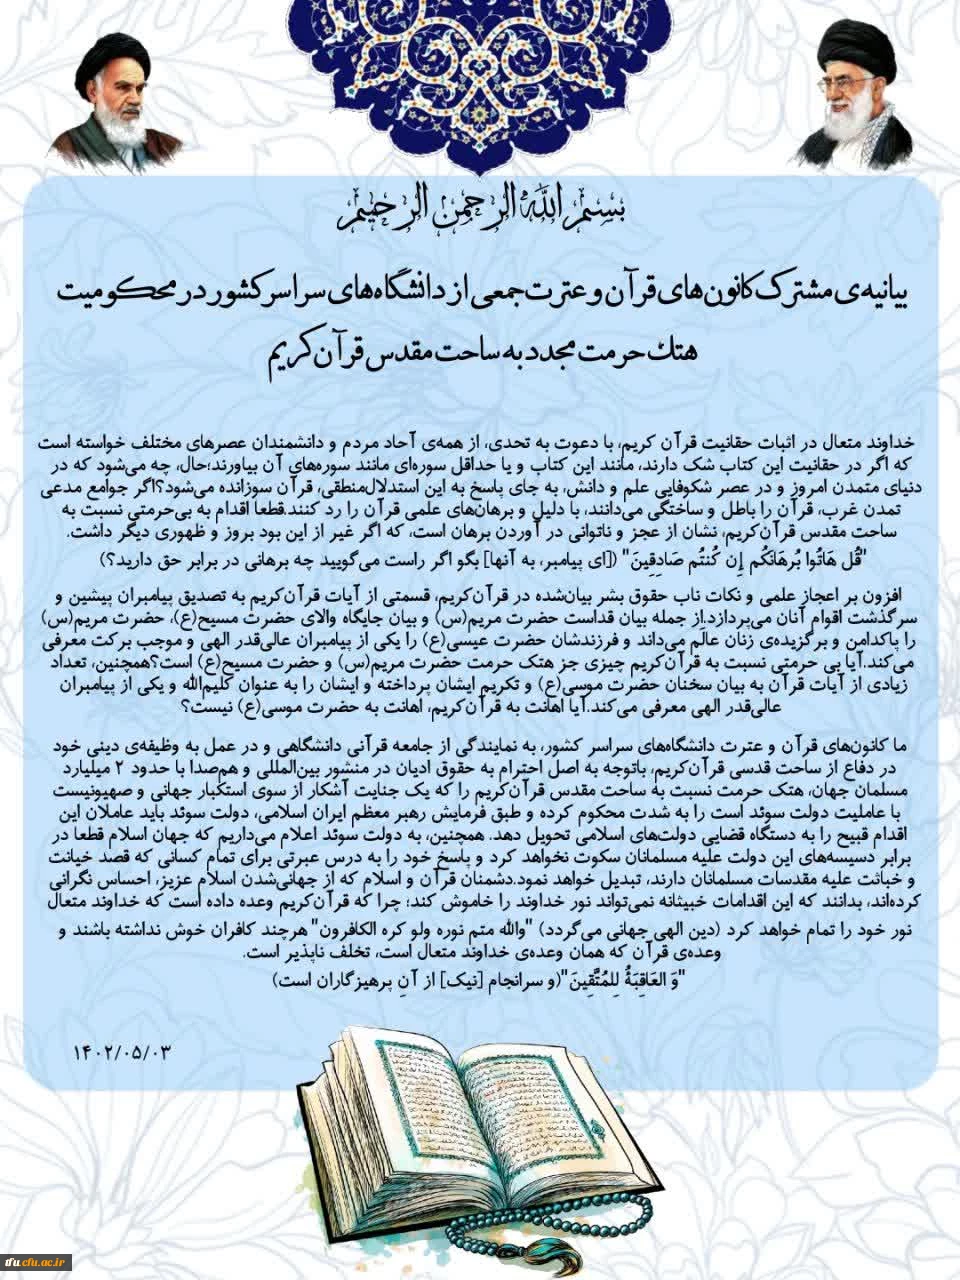 بسم الله الرحمن الرحیم
بیانیه‌ی مشترک کانون‌های قرآن و عترت جمعی از دانشگاه‌های سراسر کشور در محکومیت
هتک حرمت مجدد به ساحت مقدس قرآن کریم
خداوند متعال در اثبات حقانیت قرآن کریم، با دعوت به تحدی، از همه‌ی آحاد مردم و دانشمندان عصرهای مختلف خواسته است
که اگر در حقانیت این کتاب شک دارند، مانند این کتاب و یا حداقل سوره‌ای مانند سوره‌های آن بیاورند؛حال، چه می‌شود که در
دنیای متمدن امروز و در عصر شکوفایی علم و دانش، به جای پاسخ به این استدلال‌منطقی، قرآن سوزانده می‌شود؟اگر جوامع مدعی
تمدن غرب، قرآن را باطل و ساختگی می‌دانند، با دلیل و برهان‌های علمی قرآن را رد کنند.قطعا اقدام به بی‌حرمتی نسبت به
ساحت مقدس قرآن‌کریم، نشان از عجز و ناتوانی در آوردن برهان است، که اگر غیر از این بود بروز و ظهوری دیگر داشت.
"قُل هَاتُوا بُرهَانَکُم إِن کُنتُم صَادِقِینَ" ([ای پیامبر، به آنها] بگو اگر راست می‌گویید چه برهانی در برابر حق دارید؟)
افزون بر اعجاز علمی و نکات ناب حقوق بشر بیان‌شده در قرآن‌کریم، قسمتی از آیات قرآن‌کریم به تصدیق پیامبران پیشین و
سرگذشت اقوام آنان می‌پردازد.از جمله بیان قداست حضرت مریم(س) و بیان جایگاه والای حضرت مسیح(ع)، حضرت مریم(س)
را پاکدامن و برگزیده‌ی زنان عالَم می‌داند و فرزندشان حضرت عیسی(ع) را یکی از پیامبران عالی‌قدر الهی و موجب برکت معرفی
می‌کند.آیا بی حرمتی نسبت به قرآن‌کریم چیزی جز هتک حرمت حضرت مریم(س) و حضرت مسیح(ع) است؟همچنین، تعداد
زیادی از آیات قرآن به بیان سخنان حضرت موسی(ع) و تکریم ایشان پرداخته و ایشان را به عنوان کلیم‌الله و یکی از پیامبران
عالی‌قدر الهی معرفی می‌کند.آیا اهانت به قرآن‌کریم، اهانت به حضرت موسی(ع) نیست؟
ما کانون‌های قرآن و عترت دانشگاه‌های سراسر کشور، به نمایندگی از جامعه قرآنی دانشگاهی و در عمل به وظیفه‌ی دینی خود
در دفاع از ساحت قدسی قرآن‌کریم، باتوجه به اصل احترام به حقوق ادیان در منشور بین‌المللی و هم‌صدا با حدود ۲ میلیارد
مسلمان جهان، هتک حرمت نسبت به ساحت مقدس قرآن‌کریم را که یک جنایت آشکار از سوی استکبار جهانی و صهیونیست
با عاملیت دولت سوئد است را به شدت محکوم کرده و طبق فرمایش رهبر معظم ایران اسلامی، دولت سوئد باید عاملان این
اقدام قبیح را به دستگاه قضایی دولت‌های اسلامی تحویل دهد. همچنین، به دولت سوئد اعلام می‌داریم که جهان اسلام قطعا در
برابر دسیسه‌های این دولت علیه مسلمانان سکوت نخواهد کرد و پاسخ خود را به درس عبرتی برای تمام کسانی که قصد خیانت
و خباثت علیه مقدسات مسلمانان دارند، تبدیل خواهد نمود.دشمنان قرآن و اسلام که از جهانی‌شدن اسلام عزیز، احساس نگرانی
کرده‌اند، بدانند که این اقدامات خبیثانه نمی‌تواند نور خداوند را خاموش کند؛ چرا که قرآن‌کریم وعده داده است که خداوند متعال
نور خود را تمام خواهد کرد (دین الهی جهانی می‌گردد) "والله متم نوره ولو کره الکافرون" هرچند کافران خوش نداشته باشند و
وعده‌ی قرآن که همان وعده‌ی خداوند متعال است، تخلف ناپذیر است.
"وَ العَاقِبَةُ لِلمُتَّقِینَ"(و سرانجام [نیک] از آنِ پرهیزگاران است)
۱۴۰۲/۰۵/۰۳
tfu.cfu.ac.ir